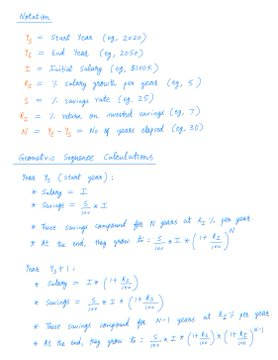 Notation
Y_S = Start Year (eg, 2020)
Y_E = End Year (eg, 2050)
I = Initial Salary (eg, $100K)
R_S = % salary growth per year (eg, 5)
S = % savings rate (eg, 25)
R_I = % return on invested savings (eg, 7)
N = Y_E - Y_S = No of years elapsed (eg, 30)
Geometric Sequence Calculations
Year Y_S (start year):
* Salary = I
* Savings = S/100 * I
* These savings compound for N years at R_I % per year.
* At the end, they grow to: S/100 * I * (1 + R_I/100)^N
Year Y_S + 1:
* Salary = I * (1 + R_S/100)
* Savings = S/100 * I * (1 + R_S/100)
* These savings compound for N-1 years at R_I % per year
* At the end, they grow to: S/100 * I * (1 + R_S/100) * (1 + R_I/100)^N-1